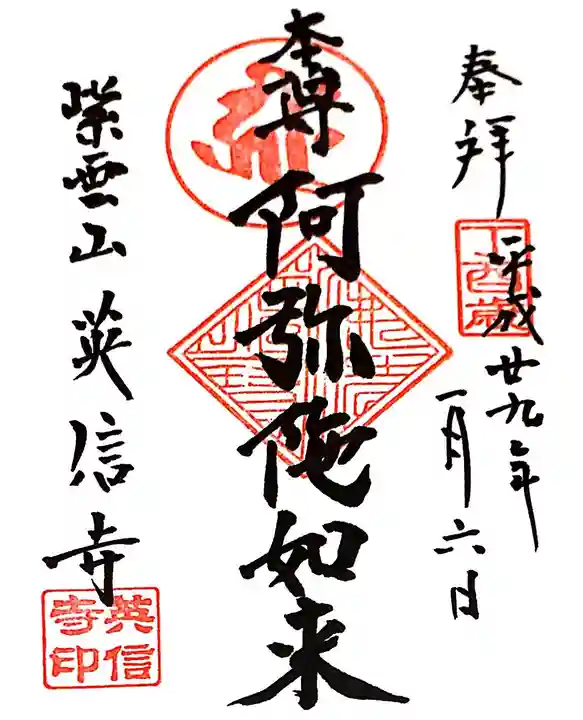 奉拝
平成廿九年
一月六日
本尊 阿弥陀如来
紫雲山 英信寺
英信寺印